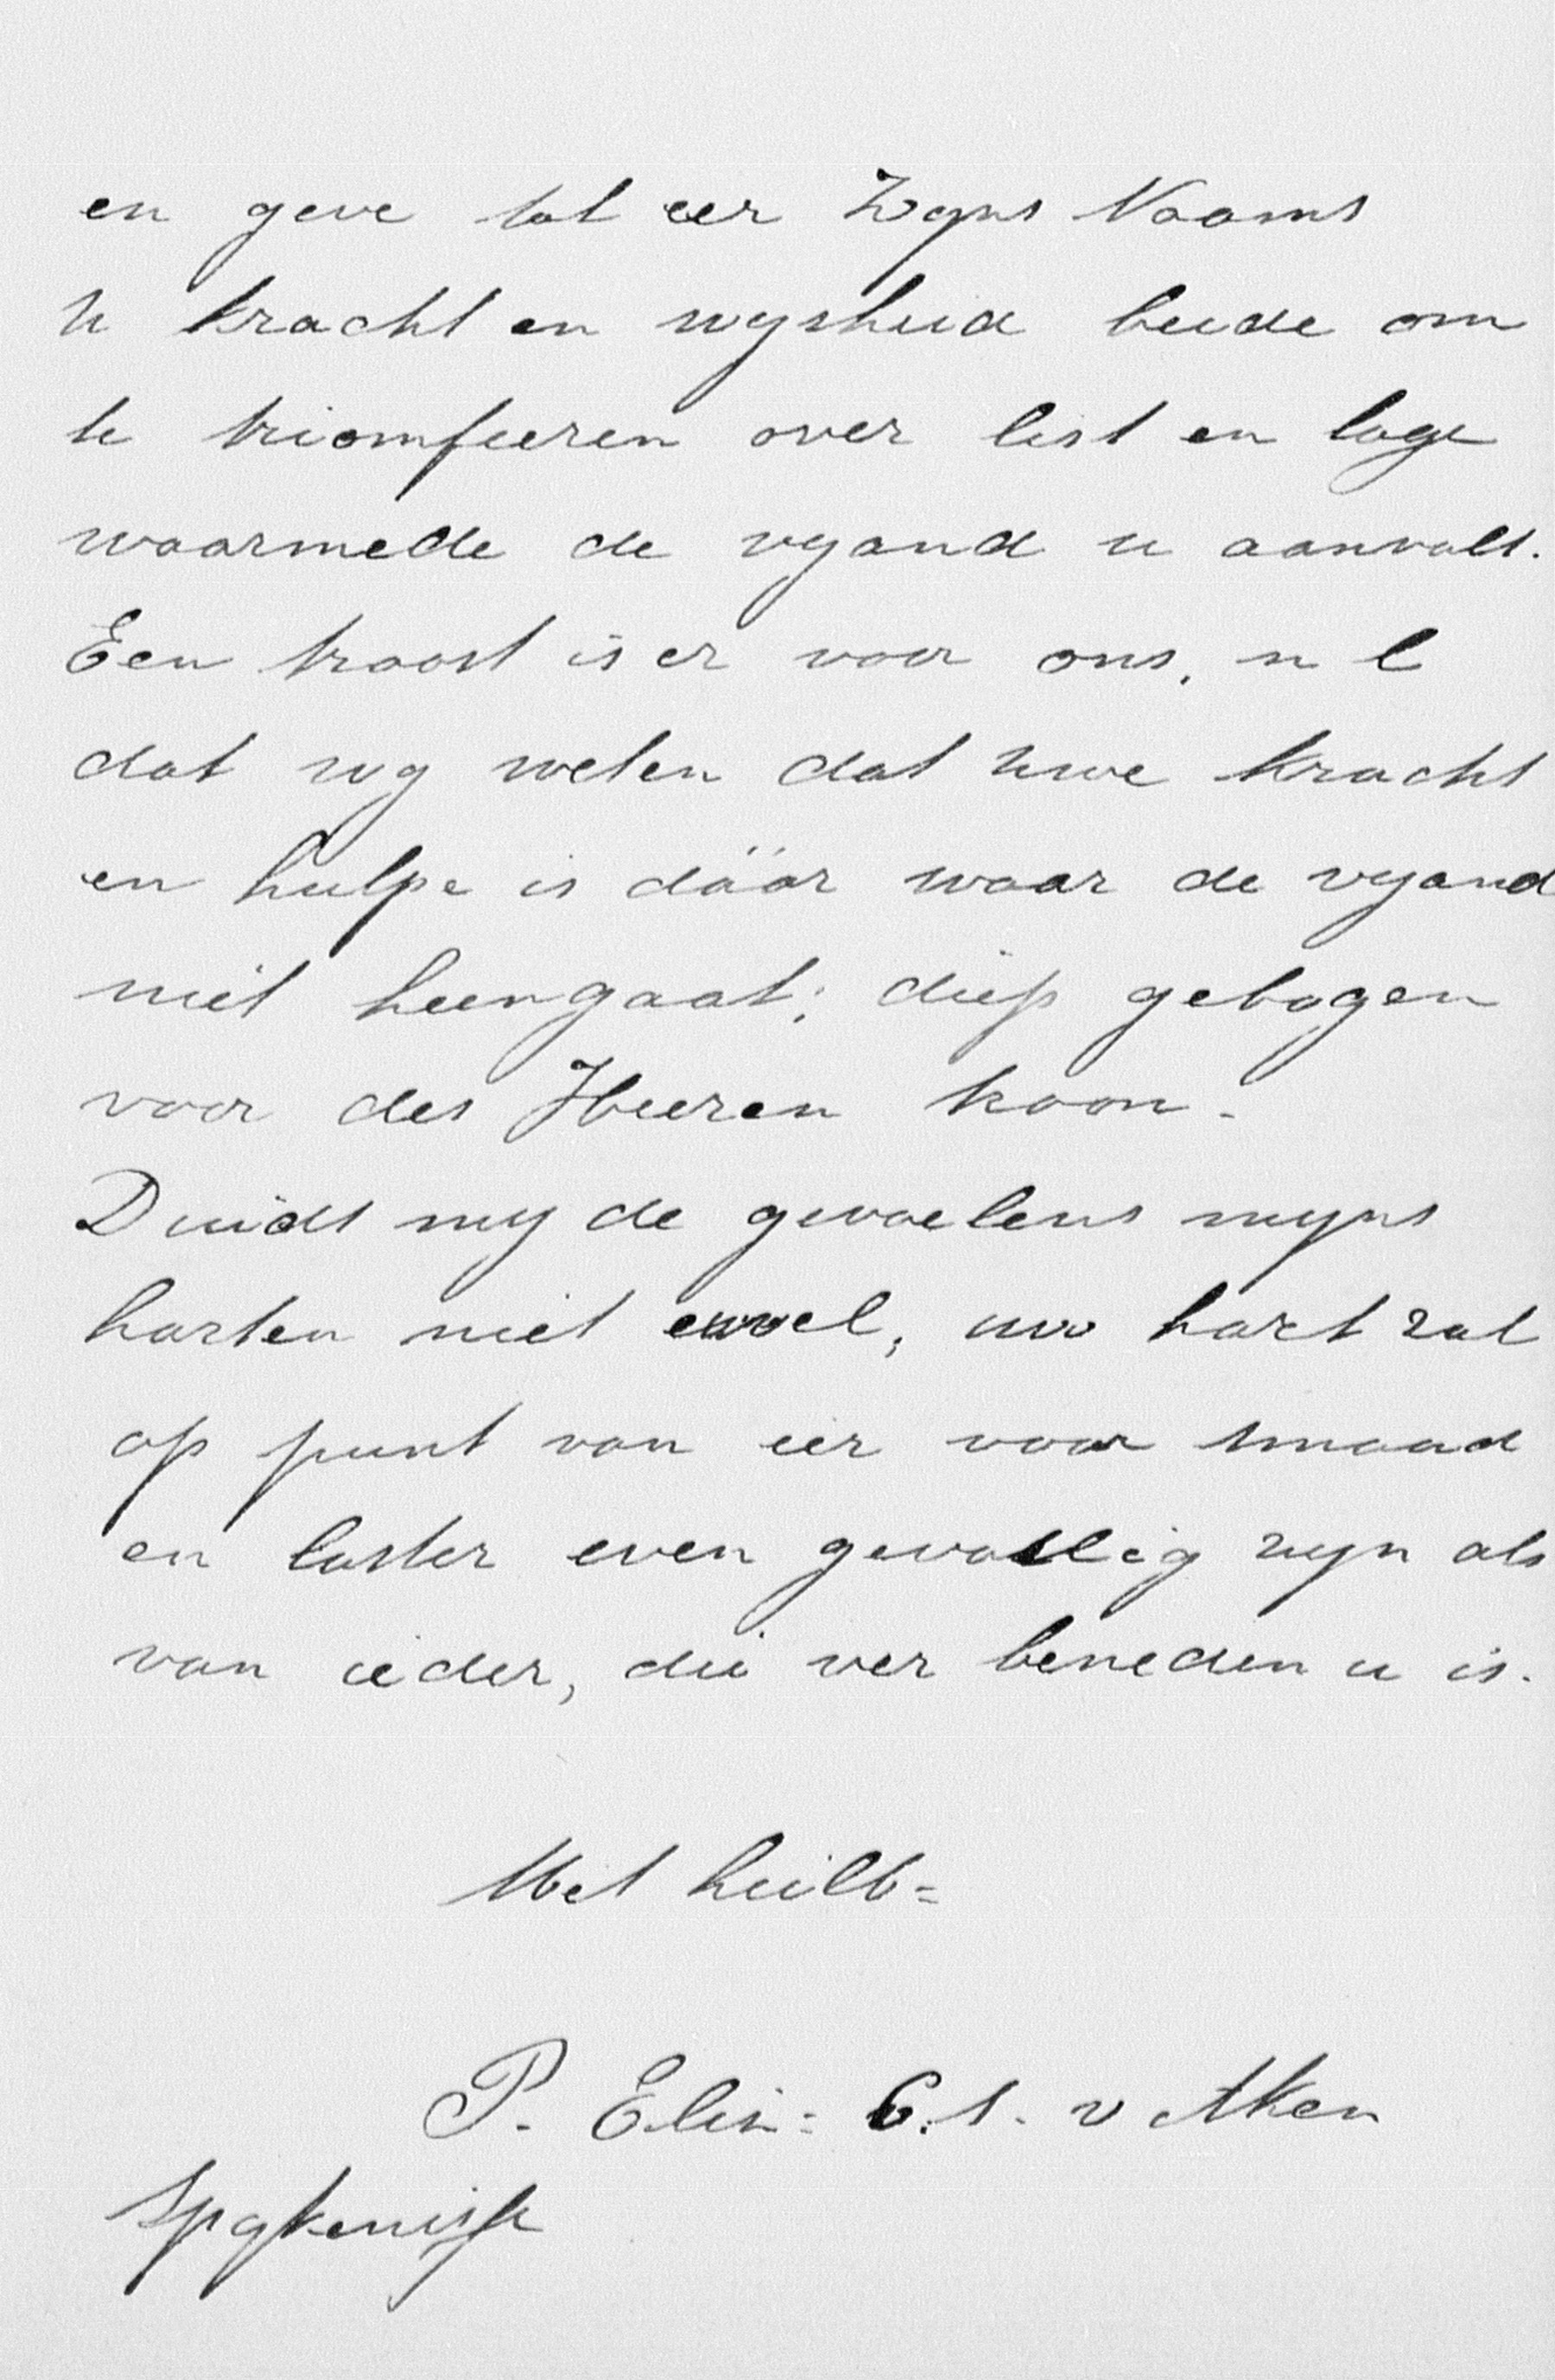 en geve tot eer Zyns Naams
U kracht en wysheid beide om
te triomfeeren over list en loge
waarmede de vyand u aanvalt.
Een troost is er voor ons, n l
dat wy weten dat Uwe kracht
en hulpe is dáár waar de vyand
niet heengaat; diep gebogen
voor des Heeren troon.
Duidt my de gevoelens myns
harten niet euvel, uw hart zal
op punt van eer voor smaad
en laster even gevoelig zyn als
van ieder, die ver beneden u is.
Met heilb=
P. Elis: C. S. v Aken
Spykenisse